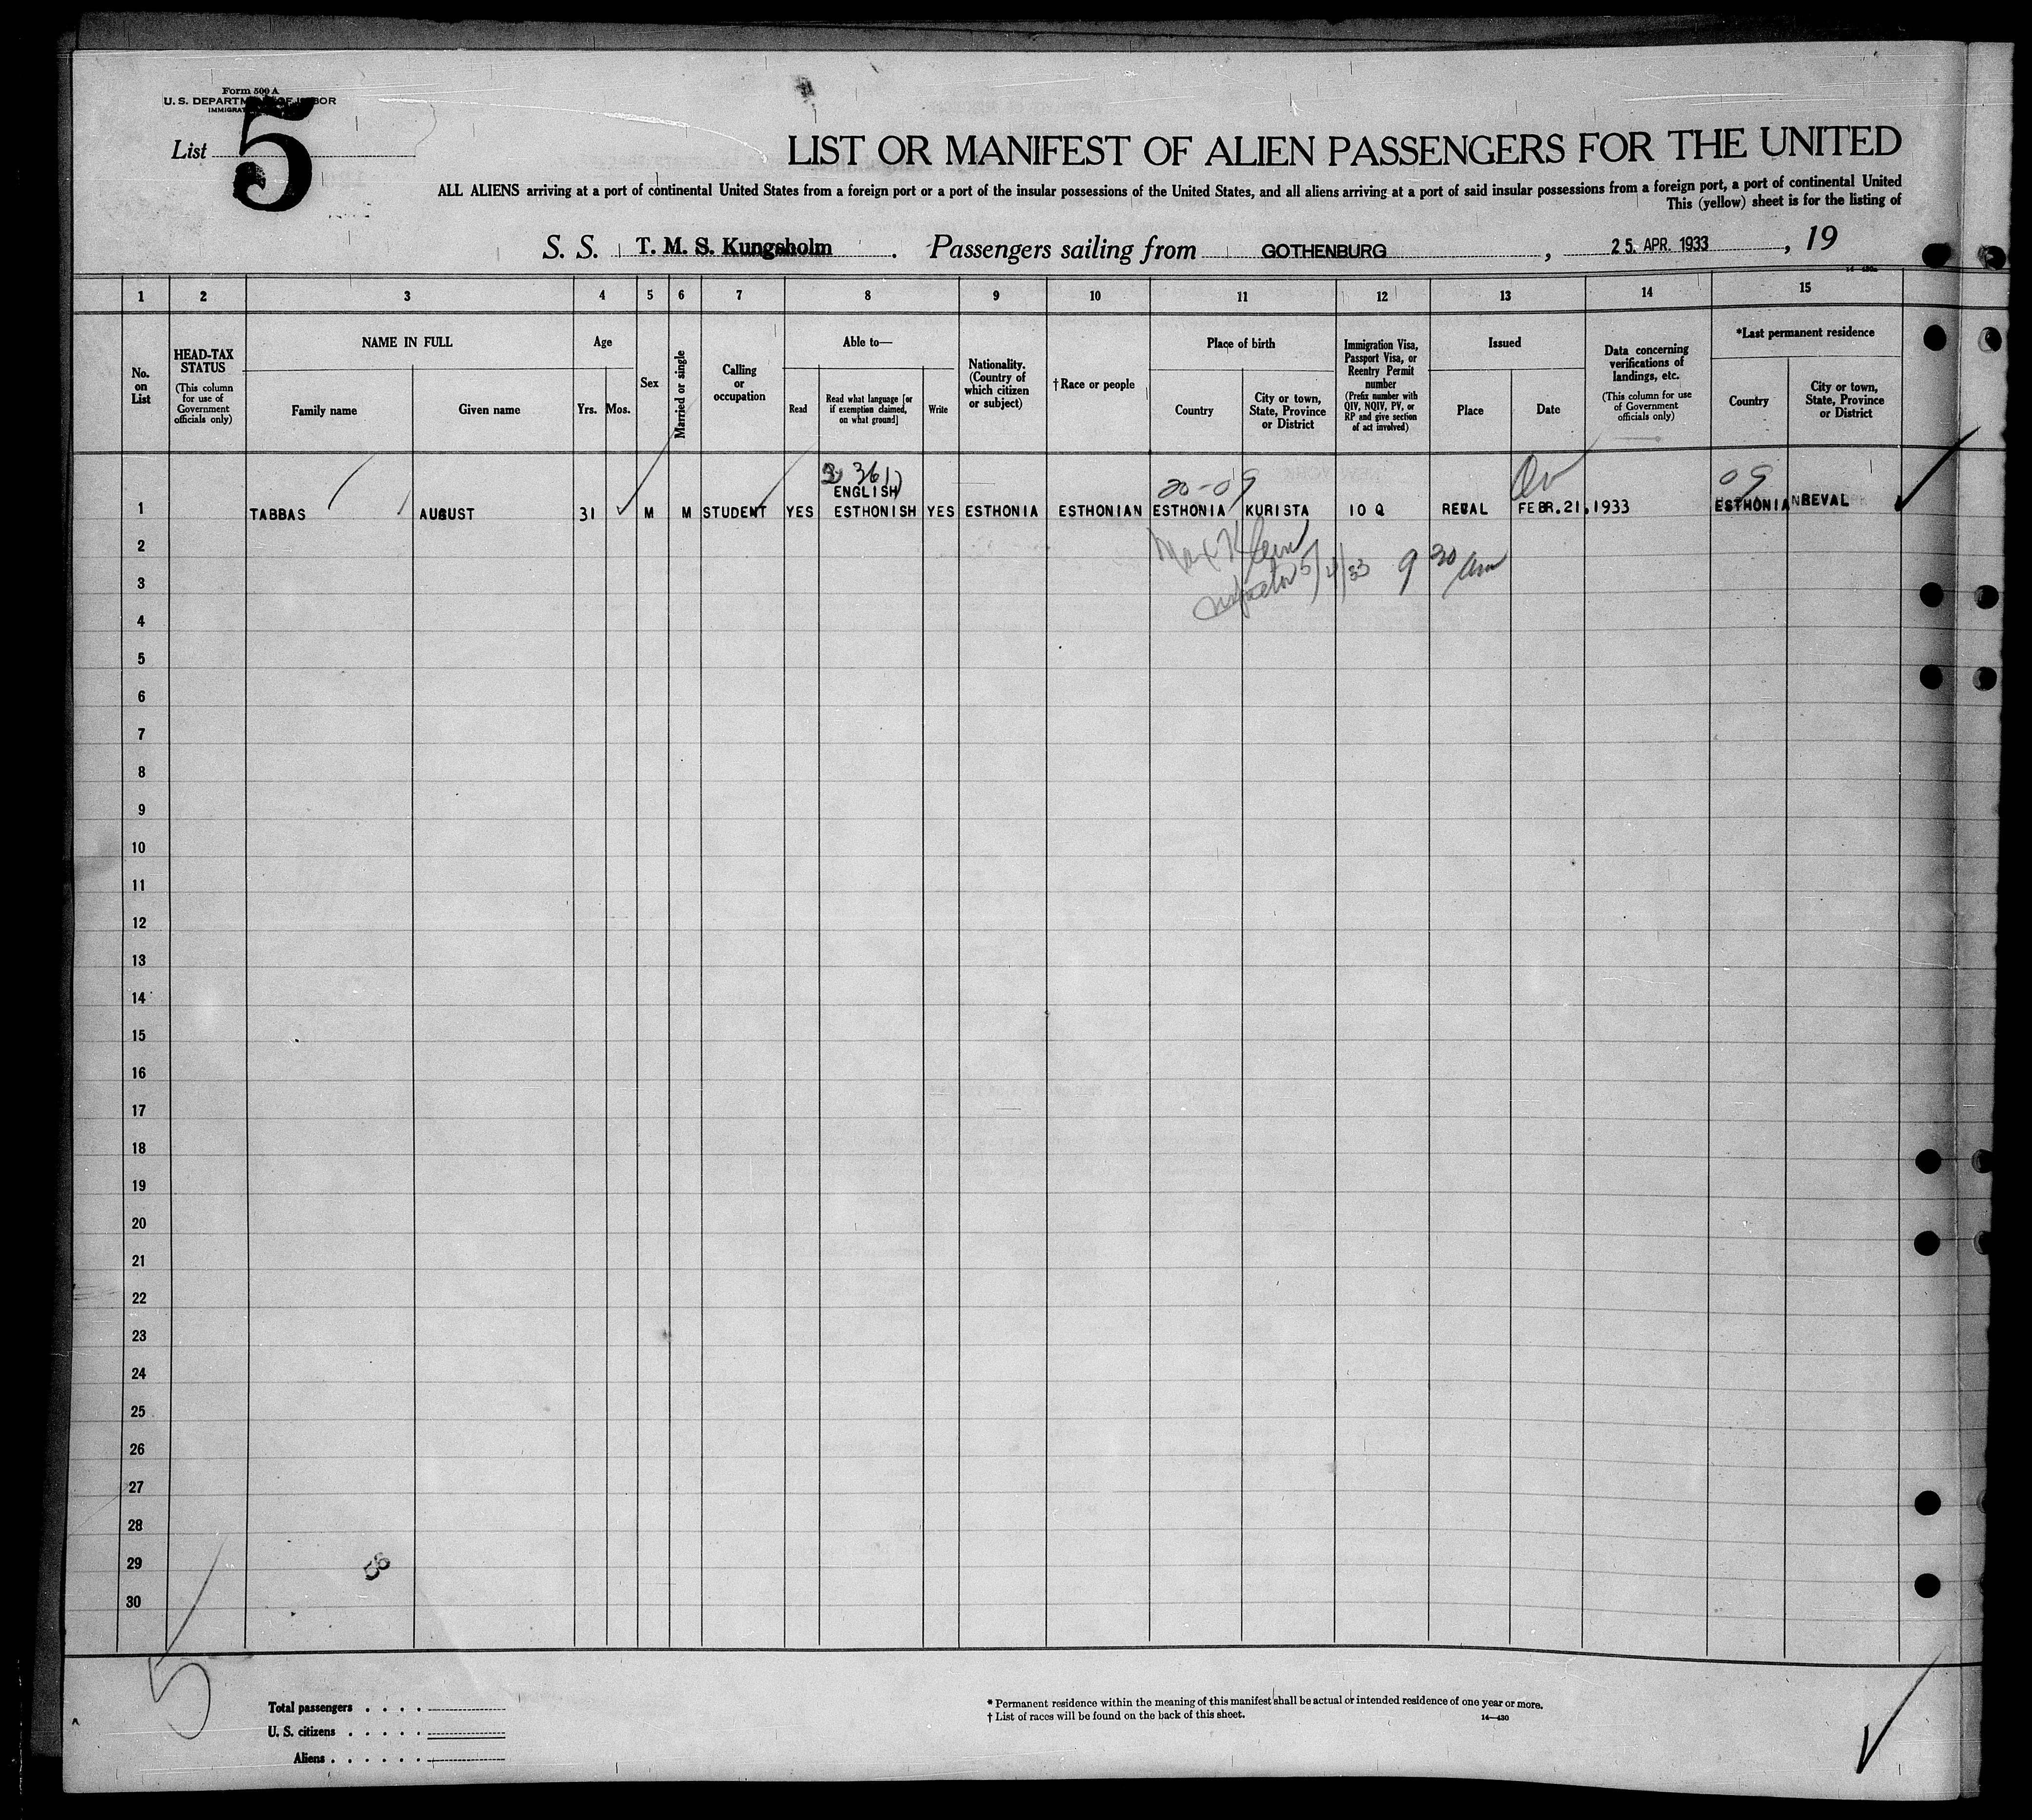 Form 500 A
U. S. DEPARTMENT OF LABOR
List 5
LIST OR MANIFEST OF ALIEN PASSENGERS FOR THE UNITED
ALL ALIENS arriving at a port of continental United States from a foreign port or a port of the insular possessions of the United States, and all aliens arriving at a port of said insular possessions from a foreign port, a port of continental United
This (yellow) sheet is for the listing of
S. S. T. M. S. Kungsholm. Passengers sailing from GOTHENBURG, 25. APR. 1933, 19
1 2 3 4 5 6 7 8 9 10 11 12 13 14 15
No. on List
HEAD-TAX STATUS
(This column for use of Government officials only)
NAME IN FULL
Family name
Given name
Age
Yrs. Mos.
Sex
Married or single
Calling or occupation
Able to—
Read
Read what language [or if exemption claimed, on what ground]
Write
Nationality. (Country of which citizen or subject)
†Race or people
Place of birth
Country
City or town, State, Province or District
Immigration Visa, Passport Visa, or Reentry Permit number
(Prefix number with QIV, NQIV, PV, or RP and give section of act involved)
Issued
Place
Date
Data concerning verifications of landings, etc.
(This column for use of Government officials only)
*Last permanent residence
Country
City or town, State, Province or District
20-09
09
ENGLISH
1 TABBAS AUGUST 31 M M STUDENT YES ESTHONISH YES ESTHONIA ESTHONIAN ESTHONIA KURISTA 10 Q REVAL FEBR.21,1933 ESTHONIA REVAL
2
Max Klein
3
Inspector 5/4/33 9 30 am
4
5
6
7
8
9
10
11
12
13
14
15
16
17
18
19
20
21
22
23
24
25
26
27
28
29
30
5
Total passengers . . . .
U. S. citizens . . . . .
Aliens . . . . . .
* Permanent residence within the meaning of this manifest shall be actual or intended residence of one year or more.
† List of races will be found on the back of this sheet.
14—430